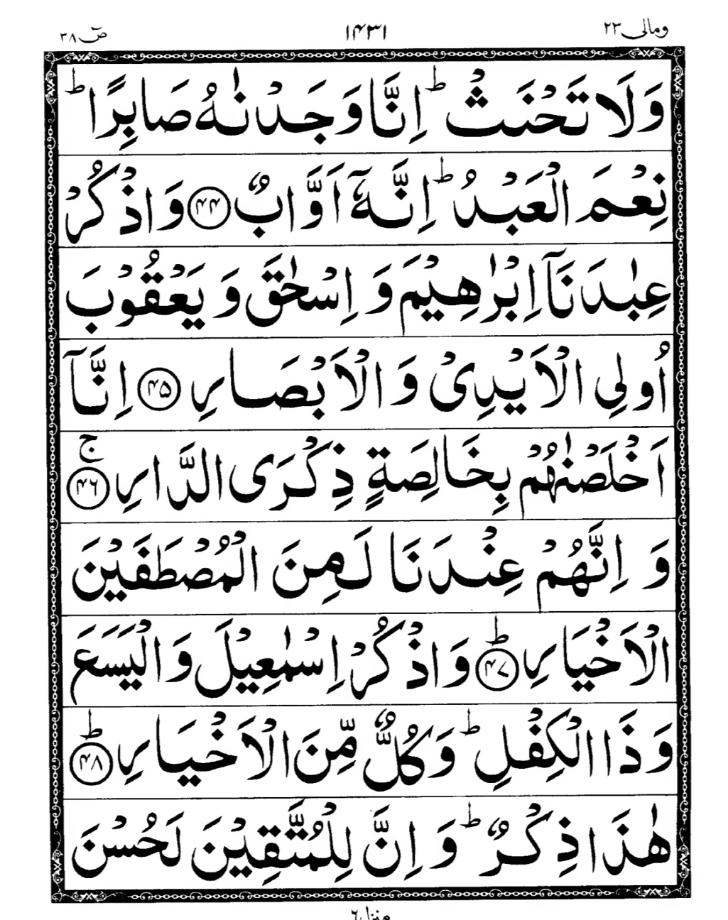 ومالی ٢٣ ١٤٣١ صٓ ٣٨
وَلَا تَحْنَثْ ؕ اِنَّا وَجَدْنٰهُ صَابِرًا ؕ
نِعْمَ الْعَبْدُ ؕ اِنَّهٗۤ اَوَّابٌ ﴿۴۴﴾ وَاذْكُرْ
عِبٰدَنَاۤ اِبْرٰهِيْمَ وَ اِسْحٰقَ وَ يَعْقُوْبَ
اُولِی الْاَيْدِیْ وَ الْاَبْصَارِ ﴿۴۵﴾ اِنَّاۤ
اَخْلَصْنٰهُمْ بِخَالِصَةٍ ذِكْرَی الدَّارِ ۚ ﴿۴۶﴾
وَ اِنَّهُمْ عِنْدَنَا لَمِنَ الْمُصْطَفَيْنَ
الْاَخْيَارِ ؕ ﴿۴۷﴾ وَاذْكُرْ اِسْمٰعِيْلَ وَ الْيَسَعَ
وَ ذَا الْكِفْلِ ؕ وَكُلٌّ مِّنَ الْاَخْيَارِ ؕ ﴿۴۸﴾
هٰذَا ذِكْرٌ ؕ وَ اِنَّ لِلْمُتَّقِيْنَ لَحُسْنَ
منزل ٦